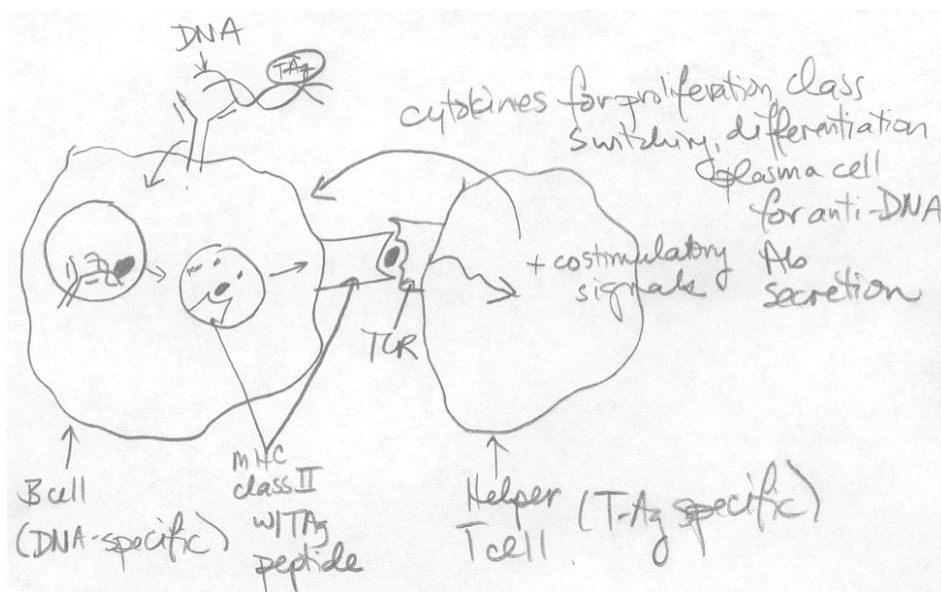 DNA
T-Ag
cytokines for proliferation class
switching, differentiation
plasma cell
for anti-DNA
Ab
secretion
+ costimulatory
signals
TCR
B cell
(DNA-specific)
MHC
class II
w/TAg
peptide
Helper
T cell
(T-Ag specific)